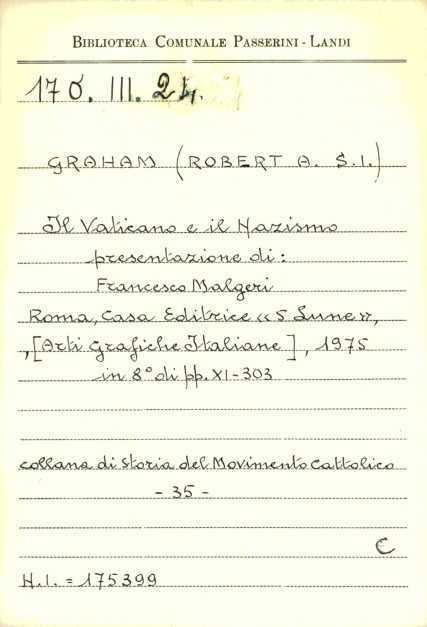 BIBLIOTECA COMUNALE PASSERINI - LANDI
170. III. 24.
GRAHAM (ROBERT A. S.I.)
Il Vaticano e il Nazismo
presentazione di:
Francesco Malgeri
Roma, Casa Editrice «5 Lune»,
,[Arti Grafiche Italiane], 1975
in 8° di pp. XI-303
collana di Storia del Movimento Cattolico
- 35 -
€
N.I. = 175399